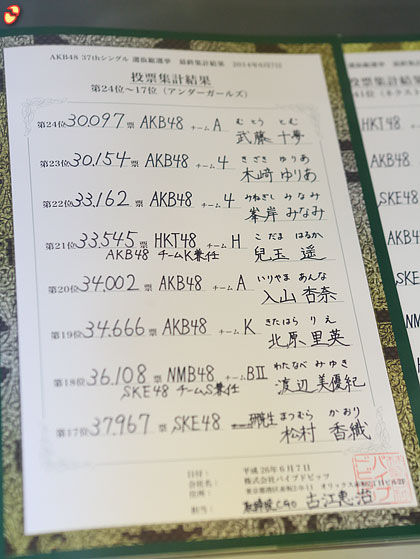 AKB48 37thシングル 選抜総選挙 最終集計結果 2014年6月7日
投票集計結果
第24位〜17位（アンダーガールズ）
第24位 30,097票 AKB48 チームA むとう とむ 武藤 十夢
第23位 30,154票 AKB48 チーム4 きざき ゆりあ 木﨑 ゆりあ
第22位 33,162票 AKB48 チーム4 みねぎし みなみ 峯岸 みなみ
第21位 33,545票 HKT48 チームH こだま はるか 兒玉 遥
AKB48 チームK兼任
第20位 34,002票 AKB48 チームA いりやま あんな 入山 杏奈
第19位 34,666票 AKB48 チームK きたはら りえ 北原 里英
第18位 36,108票 NMB48 チームBII わたなべ みゆき 渡辺 美優紀
SKE48 チームS兼任
第17位 37,967票 SKE48 研究生 まつむら かおり 松村 香織
日付： 平成26年6月7日
会社名： 株式会社パイプドビッツ
住所：
担当： 取締役CGO 古江恵治
41位（ネクスト
HKT48
AKB48
SKE48
AKB48
SKE48